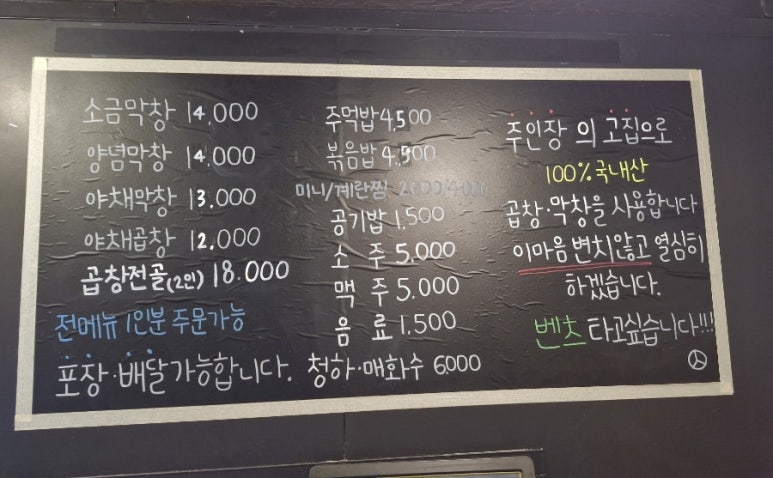 소금막창 14,000
양념막창 14,000
야채막창 13,000
야채곱창 12,000
곱창전골(2인) 18.000
전메뉴 1인분 주문가능
포장·배달가능합니다.
주먹밥 4,500
볶음밥 4,500
미니/계란찜 2000/4000
공기밥 1.500
소 주 5.000
맥 주 5.000
음 료 1.500
청하·매화수 6000
주인장 의 고집으로
100% 국내산
곱창·막창을 사용합니다
이마음 변치않고 열심히
하겠습니다.
벤츠 타고싶습니다!!!